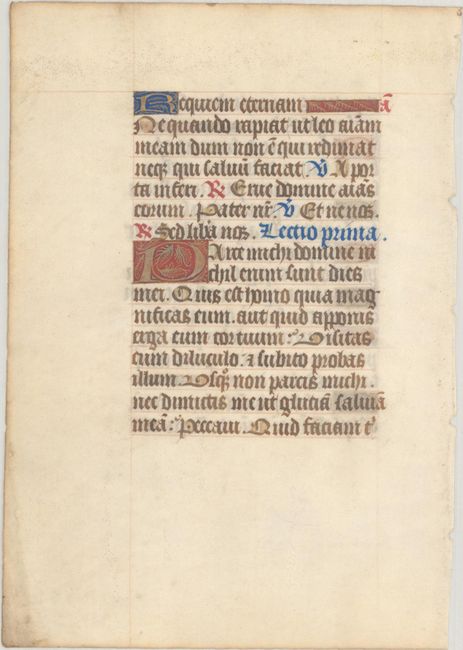 Requiem eternam a̅
Ne quando rapiat ut leo aīam
meam dum non ē qui redimat
neqꝫ qui saluū faciat. ℣ A por
ta inferi. ℟ Erue domine aīas
eorum. Pater nr̄. ℣ Et ne nos.
℟ Sed liba nos. Lectio prima.
Parce michi domine ni
chil enim sunt dies
mei. Quis est homo quia mag
nificas eum. aut quid apponis
erga eum cor tuum: Visitas
eum diluculo. ⁊ subito probas
illum. Usqꝫ quo non parcis michi.
nec dimittis me ut glutiā saliuā
meā: Peccaui. Quid faciam t'